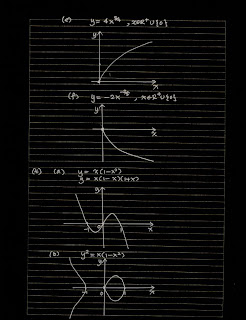 (e) y = 4x^{3/4}, x∈R⁺∪{0}
y
x
(f) y = -2x^{3/4}, x∈R⁺∪{0}
y
x
(4) (a) y = x(1-x²)
y = x(1-x)(1+x)
y
-1 0 1 x
(b) y² = x(1-x²)
y
-1 0 1 x